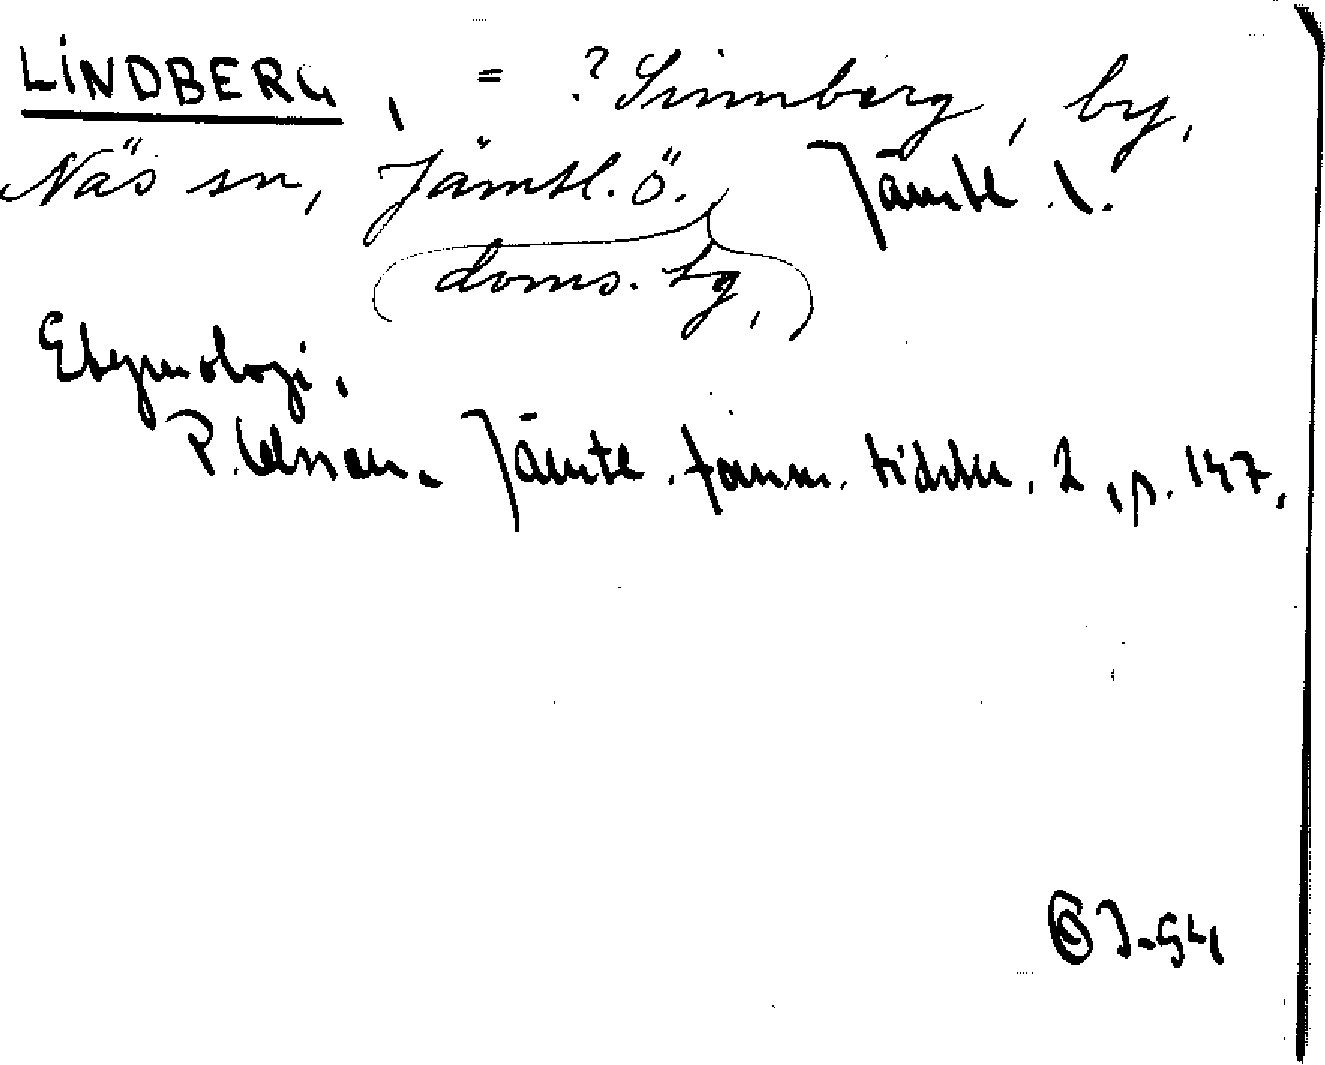 LINDBERG, = ? Sinnberg, by,
Näs sn, Jämtl. ö. Jämtl. l.
doms. lg,
Etymologi.
P. Olsson. Jämtl. fornm. tidskr. 2, p. 147.